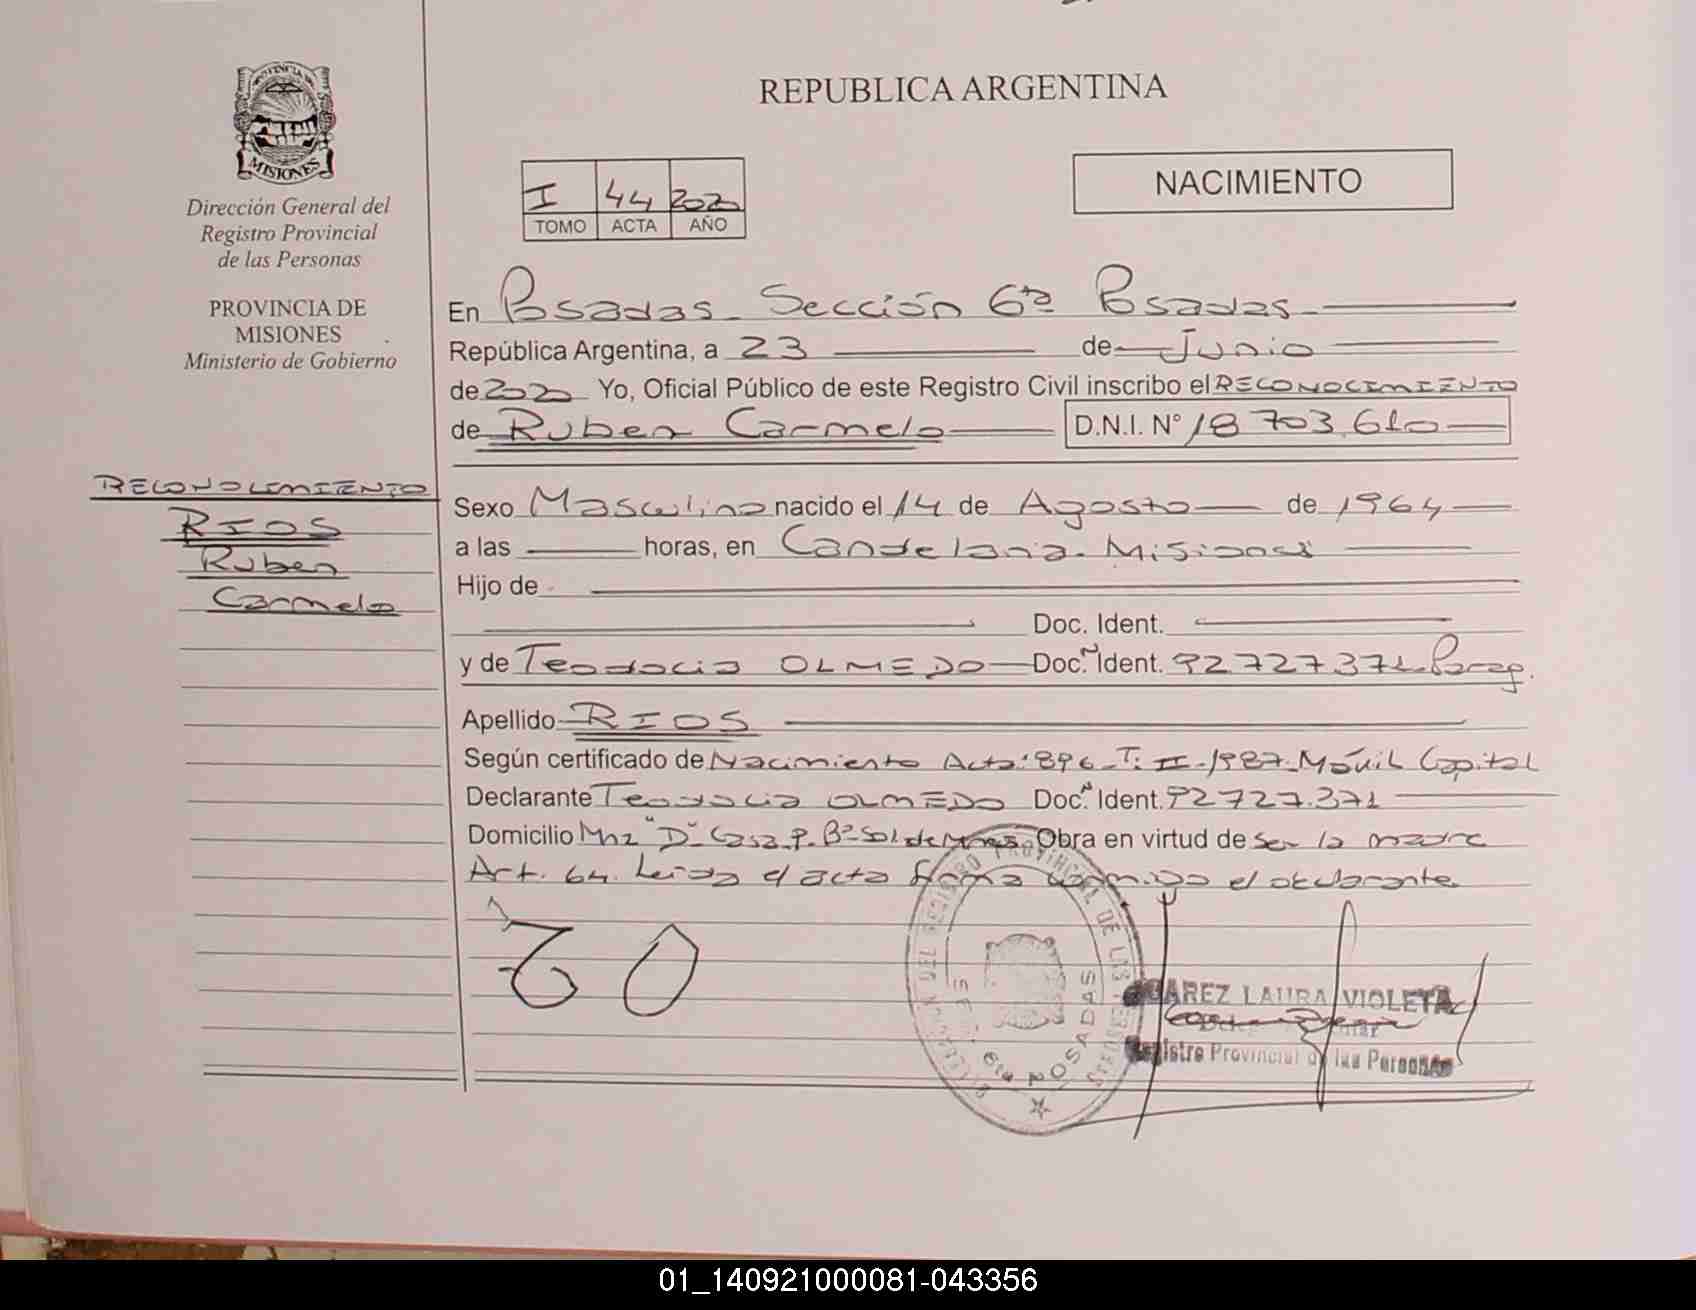 REPUBLICA ARGENTINA
PROVINCIA DE
MISIONES
Dirección General del
Registro Provincial
de las Personas
PROVINCIA DE
MISIONES
Ministerio de Gobierno
I 44 2020
TOMO ACTA AÑO
NACIMIENTO
En Posadas - Sección 6ta Posadas
República Argentina, a 23 de Junio
de 2020 Yo, Oficial Público de este Registro Civil inscribo el RECONOCIMIENTO
de Ruben Carmelo D.N.I. N° 18 703.610
RECONOCIMIENTO
RIOS
Ruben
Carmelo
Sexo Masculino nacido el 14 de Agosto de 1964
a las horas, en Candelaria - Misiones
Hijo de
Doc. Ident.
y de Teodocia OLMEDO Doc. Ident. 92727371 Parag.
Apellido RIOS
Según certificado de Nacimiento Acta: 896 - T: II - 1987 - Móvil Capital
Declarante Teodocia OLMEDO Doc. Ident. 92727.371
Domicilio Mnz "D" Casa 9. Bº Sol de Obra en virtud de ser la madre
Art. 64. Leida el acta firma conmigo el declarante
DEL REGISTRO PROVINCIAL DE LAS PERSONAS
6ta POSADAS
SUAREZ LAURA VIOLETA
Registro Provincial de las Personas
01_140921000081-043356